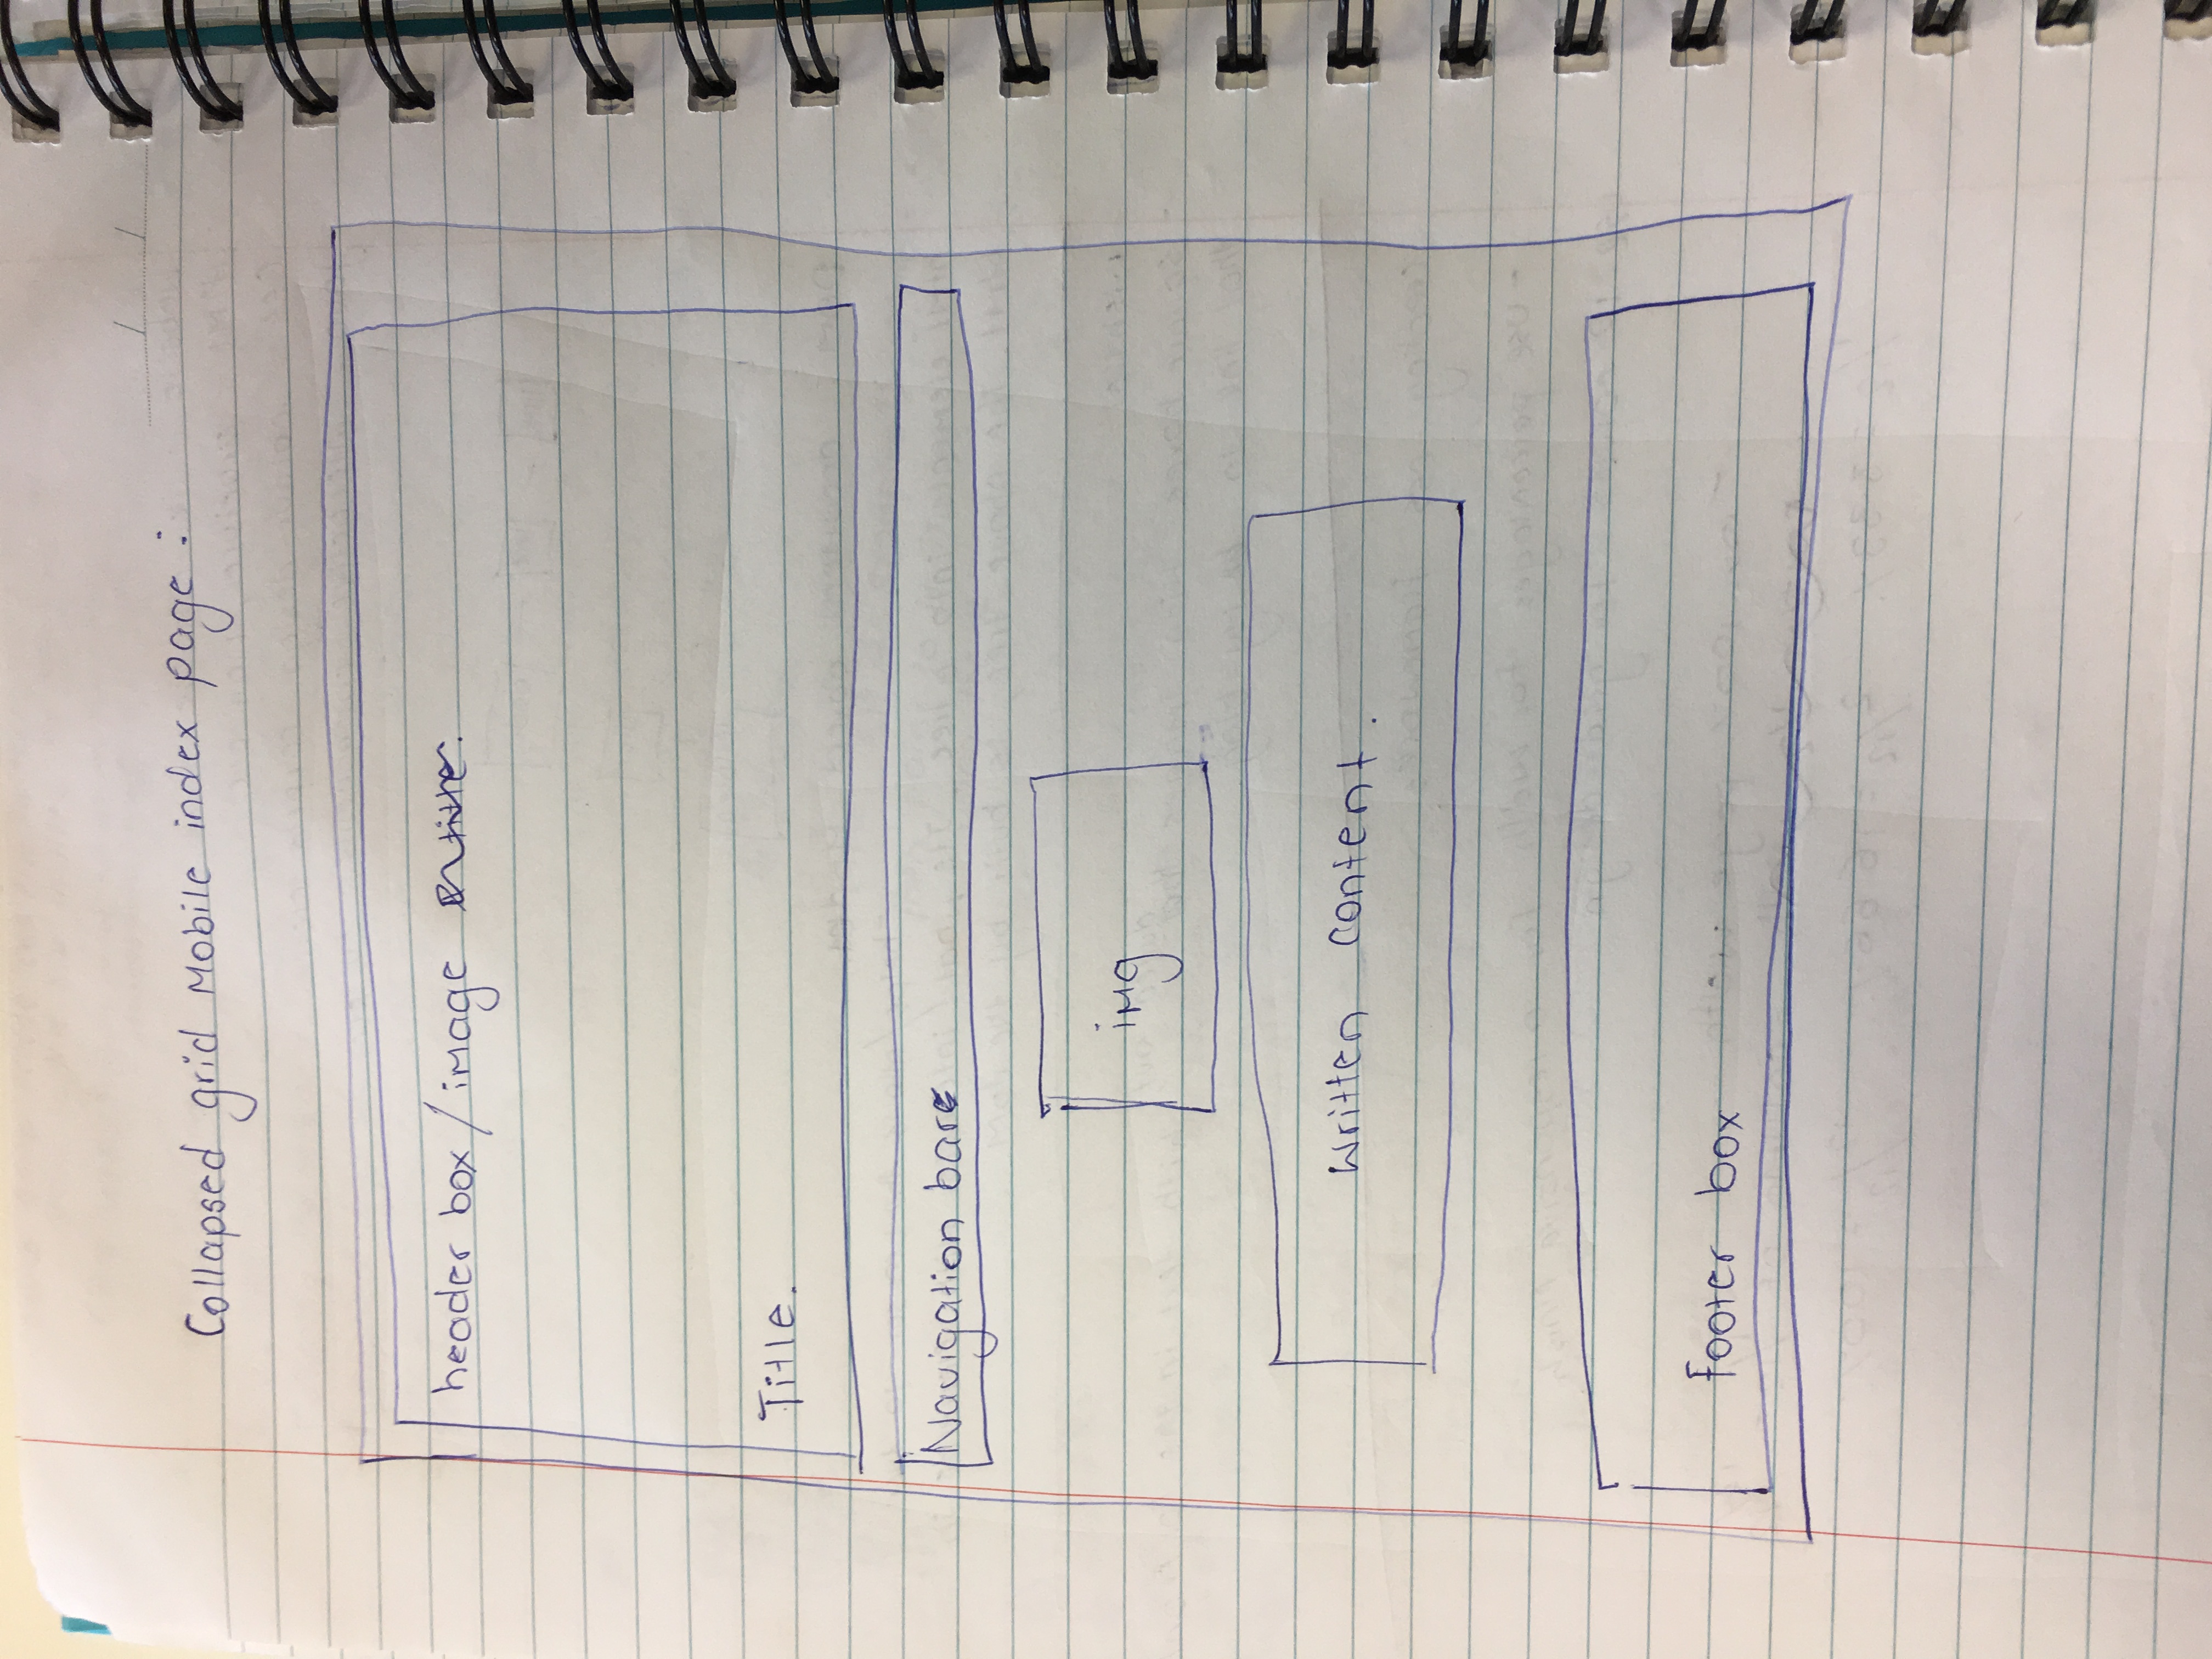 Collapsed grid Mobile index page :
header box / image
Title.
Navigation bar
img
Written content.
footer box